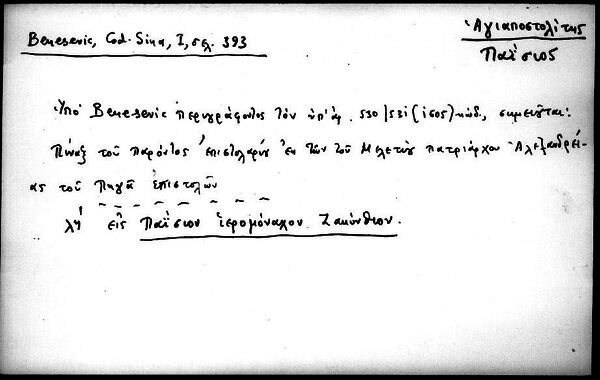 Benesevic, Cod. Sina, I, σελ. 393
Ἁγιαποστολίτης
Παΐσιος
Ὑπό Benesevic περιγράφοντος τόν ὑπ' ἀρ. 530/531 (1605) κώδ., σημειοῦται:
Πίναξ τοῦ παρόντος ἐπιστολαρίου ἐκ τῶν τοῦ Μελετίου πατριάρχου Ἀλεξανδρεί-
ας τοῦ Πηγᾶ ἐπιστολῶν
λή εἰς Παΐσιον ἱερομόναχον Ζακύνθιον.